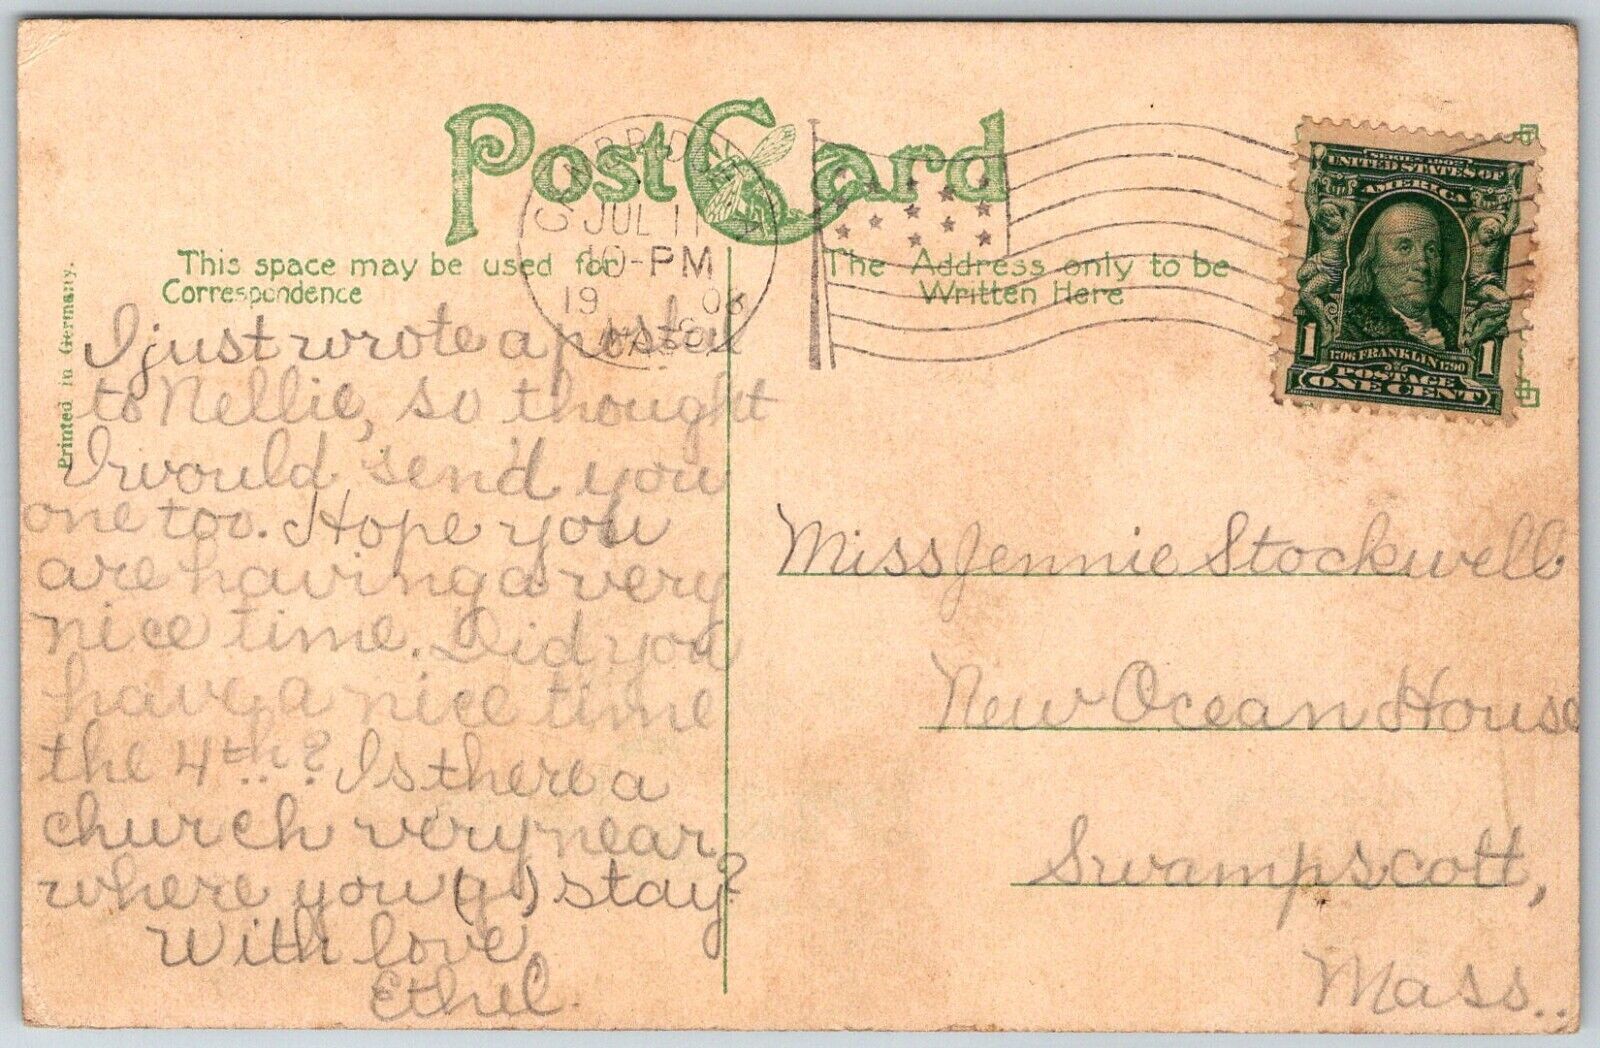 Post Card
CAMBRIDGE
JUL 11
10-PM
1908
MASS.
This space may be used for
Correspondence
The Address only to be
Written Here
SERIES 1902
UNITED STATES OF
AMERICA
1 1
1706 FRANKLIN 1790
POSTAGE
ONE CENT
Printed in Germany.
I just wrote a postal
to Nellie, so thought
I would send you
one too. Hope you
are having a very
nice time. Did you
have a nice time
the 4th? Is there a
church very near
where you (g) stay?
With love,
Ethel.
Miss Jennie Stockwell
New Ocean House
Swampscott,
Mass.